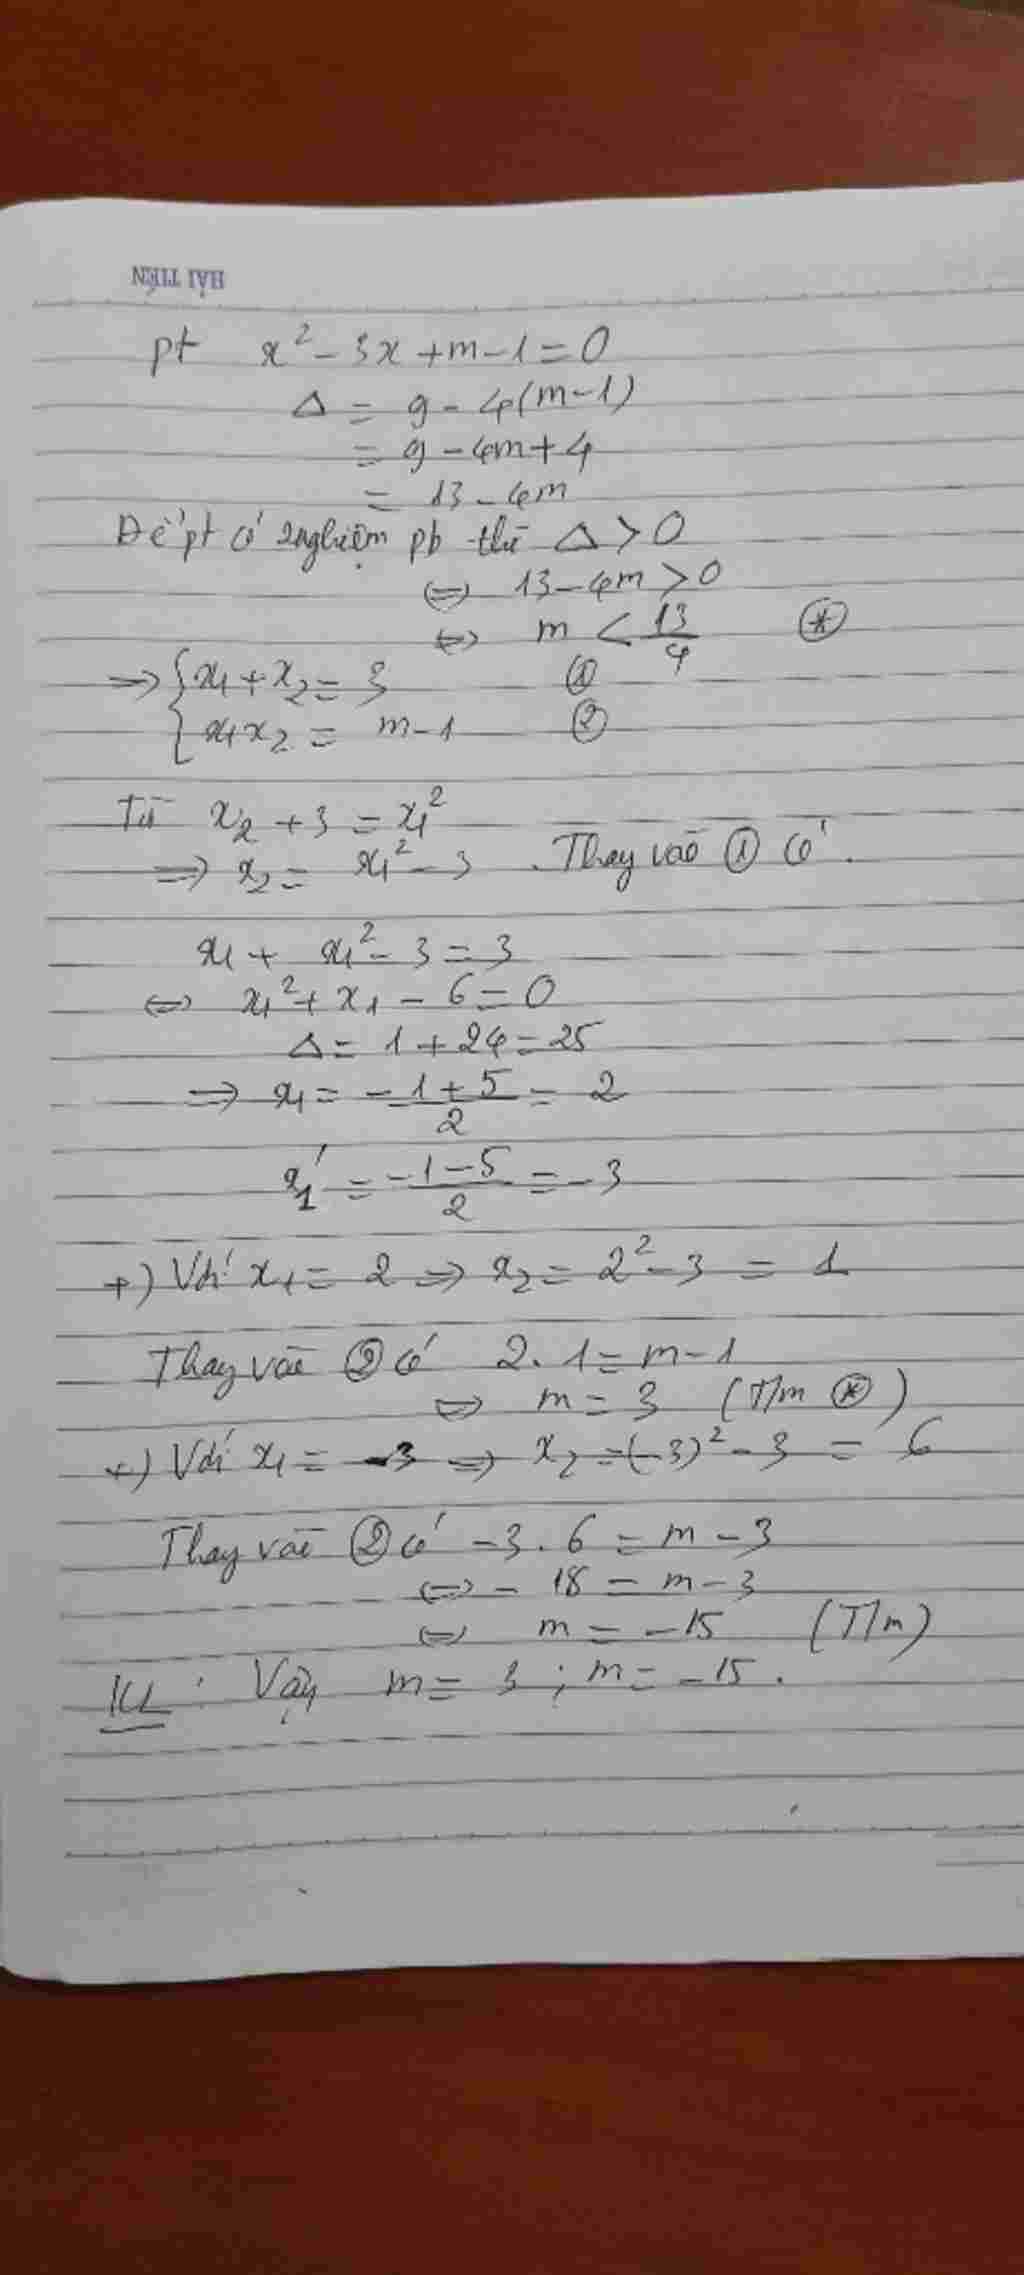 HẢI TIẾN
pt x² - 3x + m - 1 = 0
Δ = 9 - 4(m - 1)
= 9 - 4m + 4
= 13 - 4m
Để pt có 2 nghiệm pb thì Δ > 0
⇔ 13 - 4m > 0
⇔ m < 13/4 (*)
⇒ { x₁ + x₂ = 3 ①
{ x₁x₂ = m - 1 ②
Từ x₂ + 3 = x₁²
⇒ x₂ = x₁² - 3 . Thay vào ① có .
x₁ + x₁² - 3 = 3
⇔ x₁² + x₁ - 6 = 0
Δ = 1 + 24 = 25
⇒ x₁ = (-1 + 5)/2 = 2
x₁' = (-1 - 5)/2 = -3
+) Với x₁ = 2 ⇒ x₂ = 2² - 3 = 1
Thay vào ② có 2 . 1 = m - 1
⇔ m = 3 (T/m (*))
+) Với x₁ = -3 ⇒ x₂ = (-3)² - 3 = 6
Thay vào ② có -3 . 6 = m - 3
⇔ - 18 = m - 3
⇔ m = -15 (T/m)
KL : Vậy m = 3 ; m = -15 .